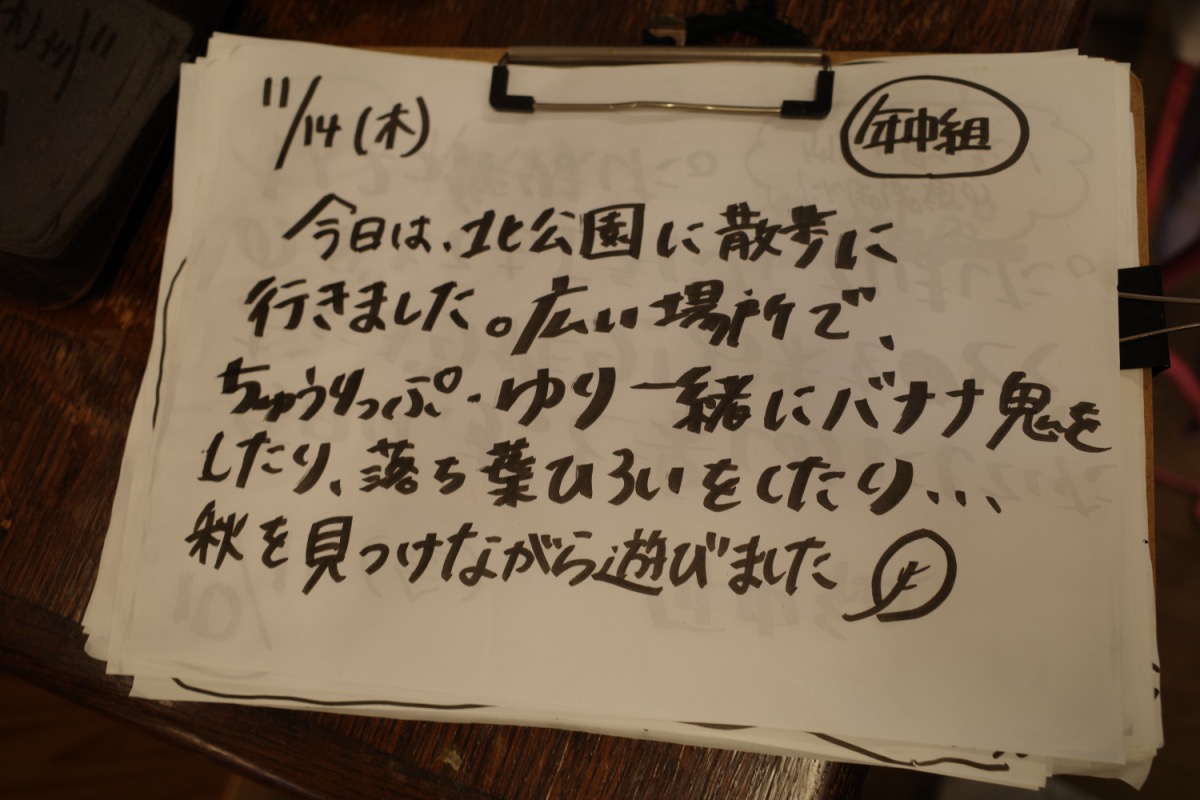 11/14(木)
年中組
今日は、北公園に散歩に
行きました。広い場所で、
ちゅうりっぷ・ゆり一緒にバナナ鬼を
したり、落ち葉ひろいをしたり...
秋を見つけながら遊びました